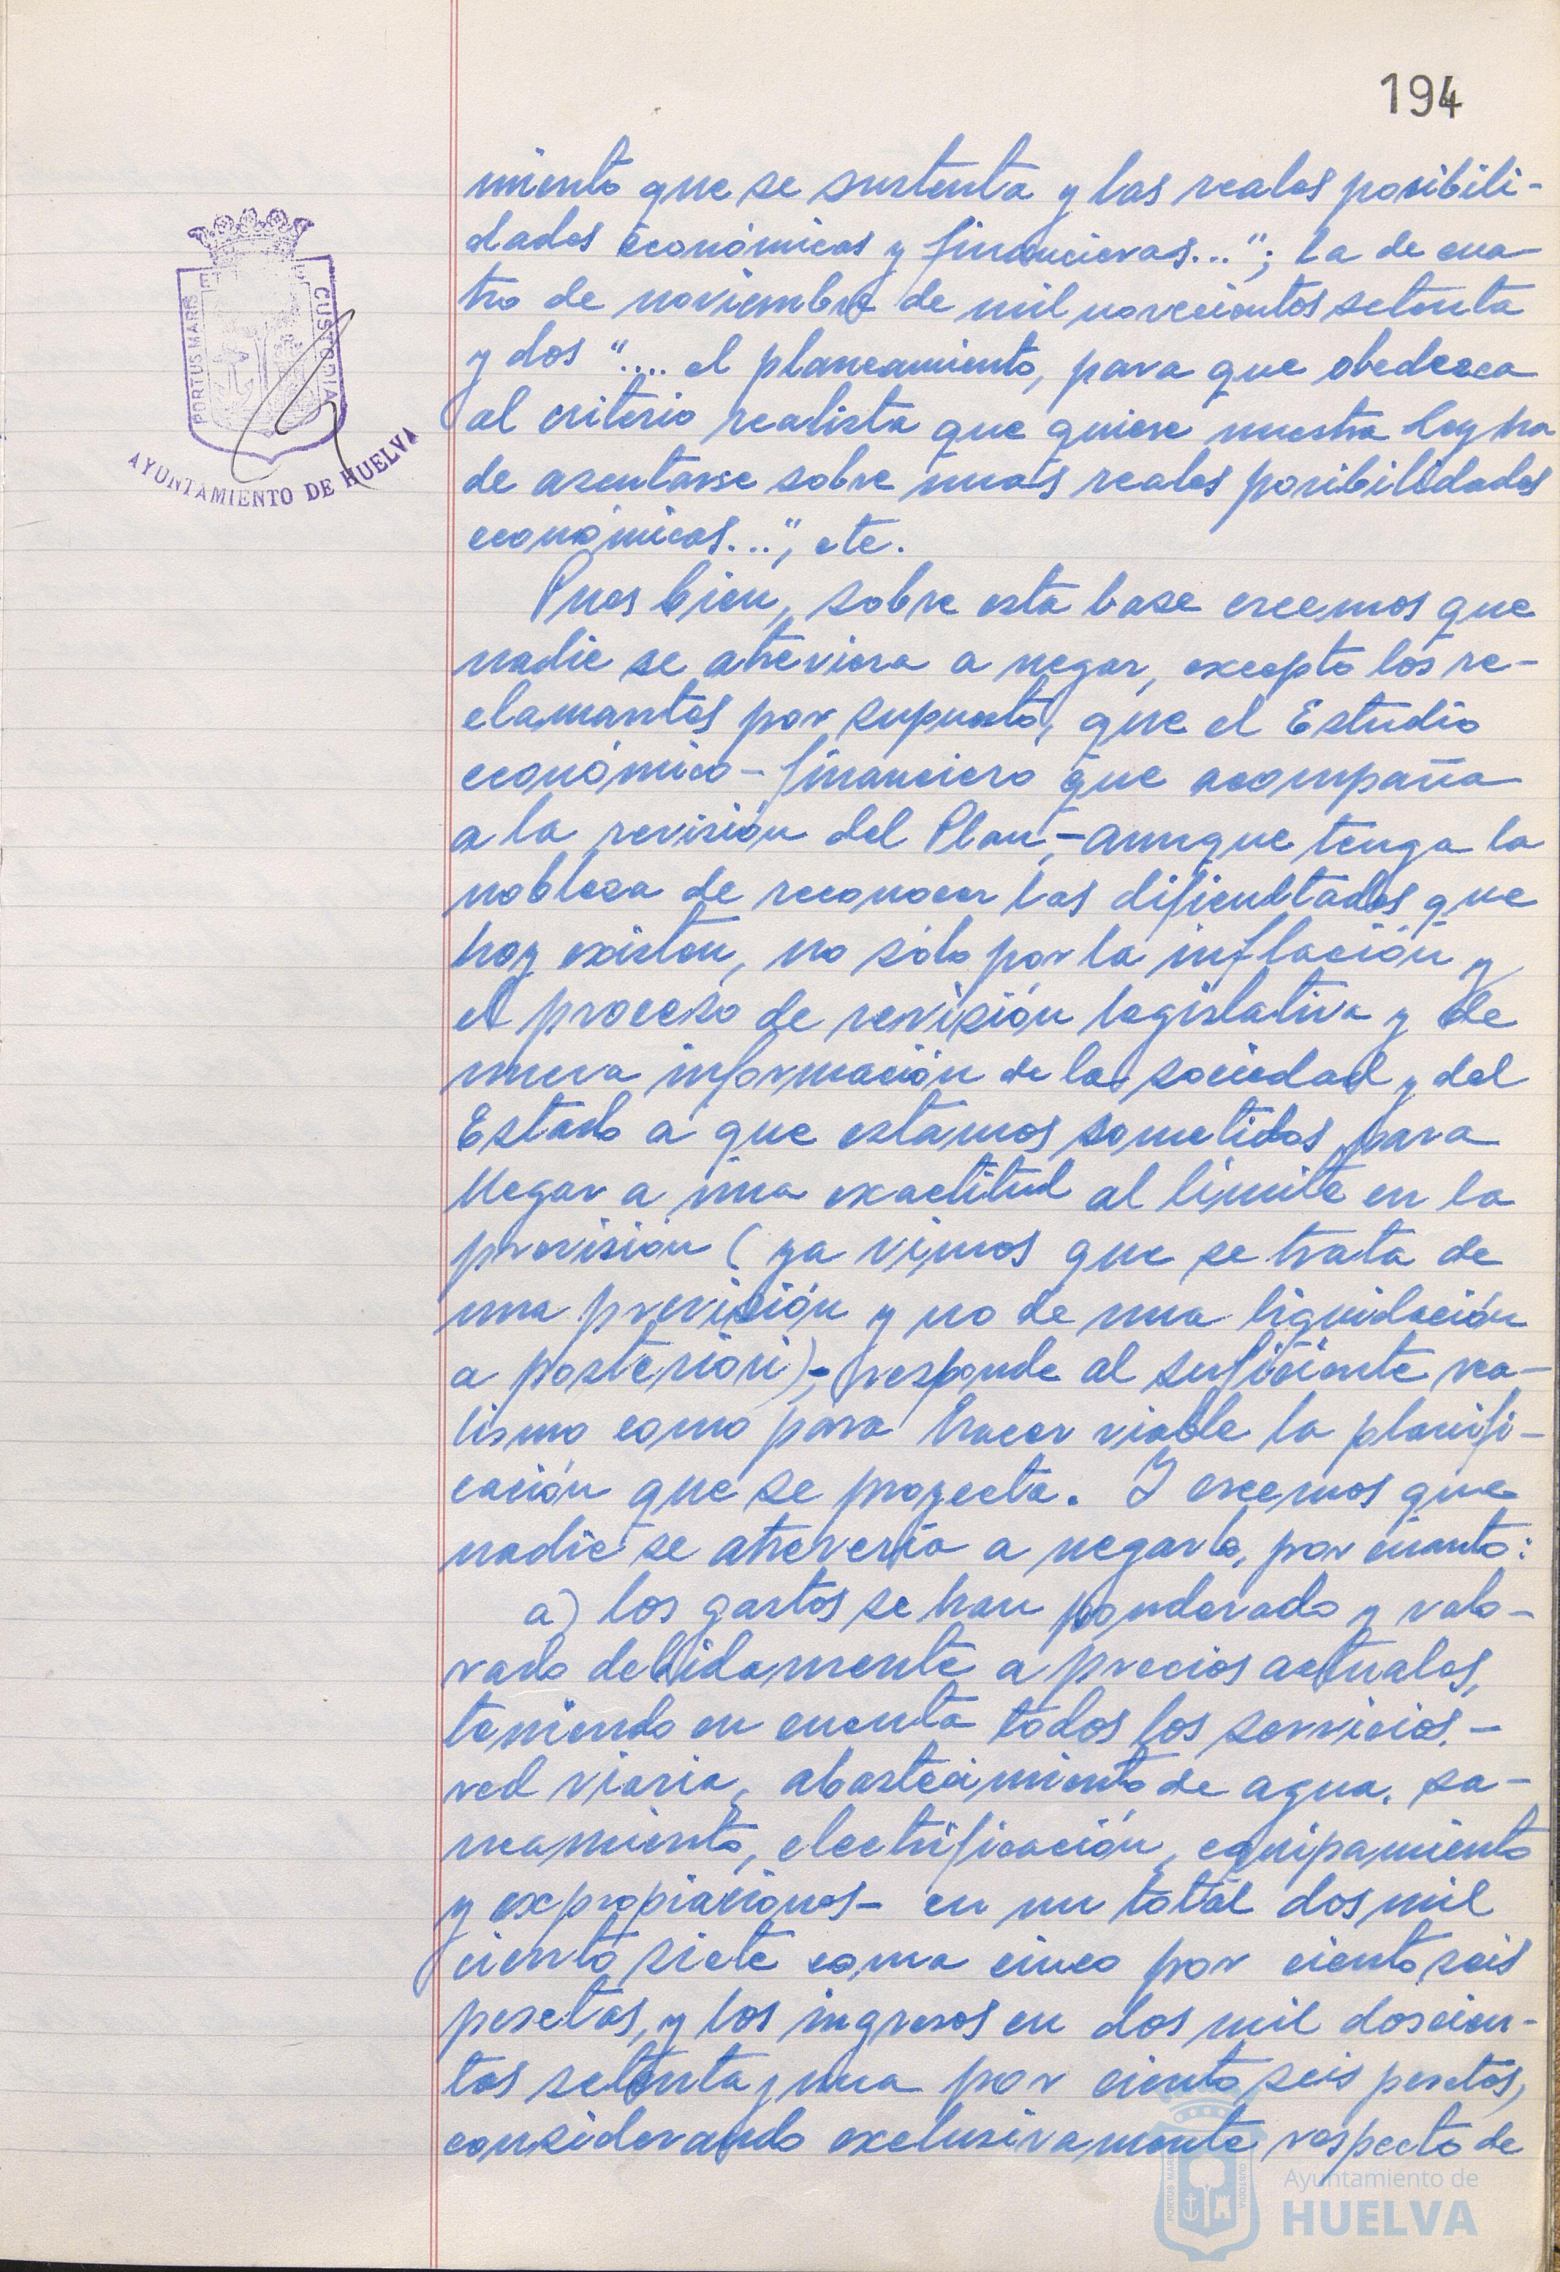 194
PORTUS MARIS
CUSTODIA
AYUNTAMIENTO DE HUELVA
miento que se sustenta y las reales posibili-
dades económicas y financieras..."; la de cua-
tro de noviembre de mil novecientos setenta
y dos ".... el planeamiento, para que obedezca
al criterio realista que quiere nuestra ley ha
de asentarse sobre unas reales posibilidades
económicas...", etc.
Pues bien, sobre esta base creemos que
nadie se atreviera a negar, excepto los re-
clamantes por supuesto, que el Estudio
económico-financiero que acompaña
a la revisión del Plan, - aunque tenga la
nobleza de reconocer las dificultades que
hoy existen, no sólo por la inflación y
el proceso de revisión legislativa y de
nueva información de la sociedad y del
Estado a que estamos sometidos para
llegar a una exactitud al límite en la
previsión (ya vimos que se trata de
una previsión y no de una liquidación
a posteriori)-, responde al suficiente rea-
lismo como para hacer viable la planifi-
cación que se proyecta. Y creemos que
nadie se atrevería a negarlo, por cuanto:
a) los gastos se han ponderado y valo-
rado debidamente a precios actuales,
teniendo en cuenta todos los servicios, -
red viaria, abastecimiento de agua, sa-
neamiento, electrificación, equipamiento
y expropiaciones- en un total dos mil
ciento siete coma cinco por ciento seis
pesetas, y los ingresos en dos mil doscien-
tos setenta y una por ciento seis pesetas,
considerando exclusivamente respecto de
Ayuntamiento de
HUELVA